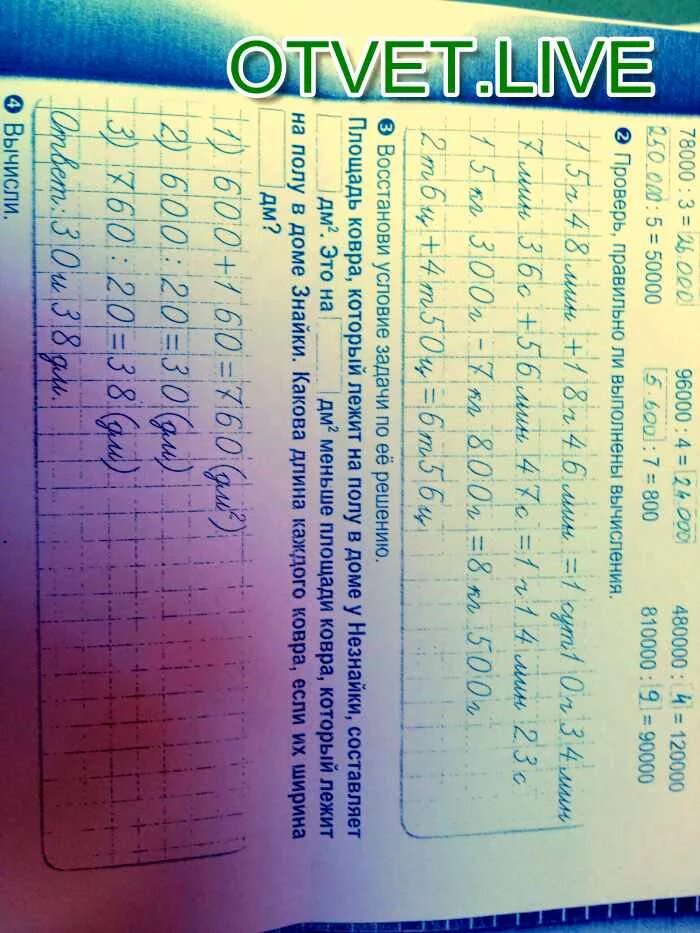 OTVET.LIVE
78000 : 3 = 26000 96000 : 4 = 24000 480000 : 4 = 120000
250000 : 5 = 50000 5 600 : 7 = 800 810000 : 9 = 90000
2 Проверь, правильно ли выполнены вычисления.
15ч 48мин + 18ч 46мин = 1 сут 10ч 34мин
7 мин 36с + 56 мин 47с = 1ч 14 мин 23с
15 кг 300г - 7 кг 800г = 8 кг 500г
2т 6ц + 4т 50ц = 6т 56ц
3 Восстанови условие задачи по её решению.
Площадь ковра, который лежит на полу в доме у Незнайки, составляет
дм². Это на дм² меньше площади ковра, который лежит
на полу в доме Знайки. Какова длина каждого ковра, если их ширина
дм?
1) 600 + 160 = 760 (дм²)
2) 600 : 20 = 30 (дм)
3) 760 : 20 = 38 (дм)
Ответ: 30 и 38 дм.
4 Вычисли.